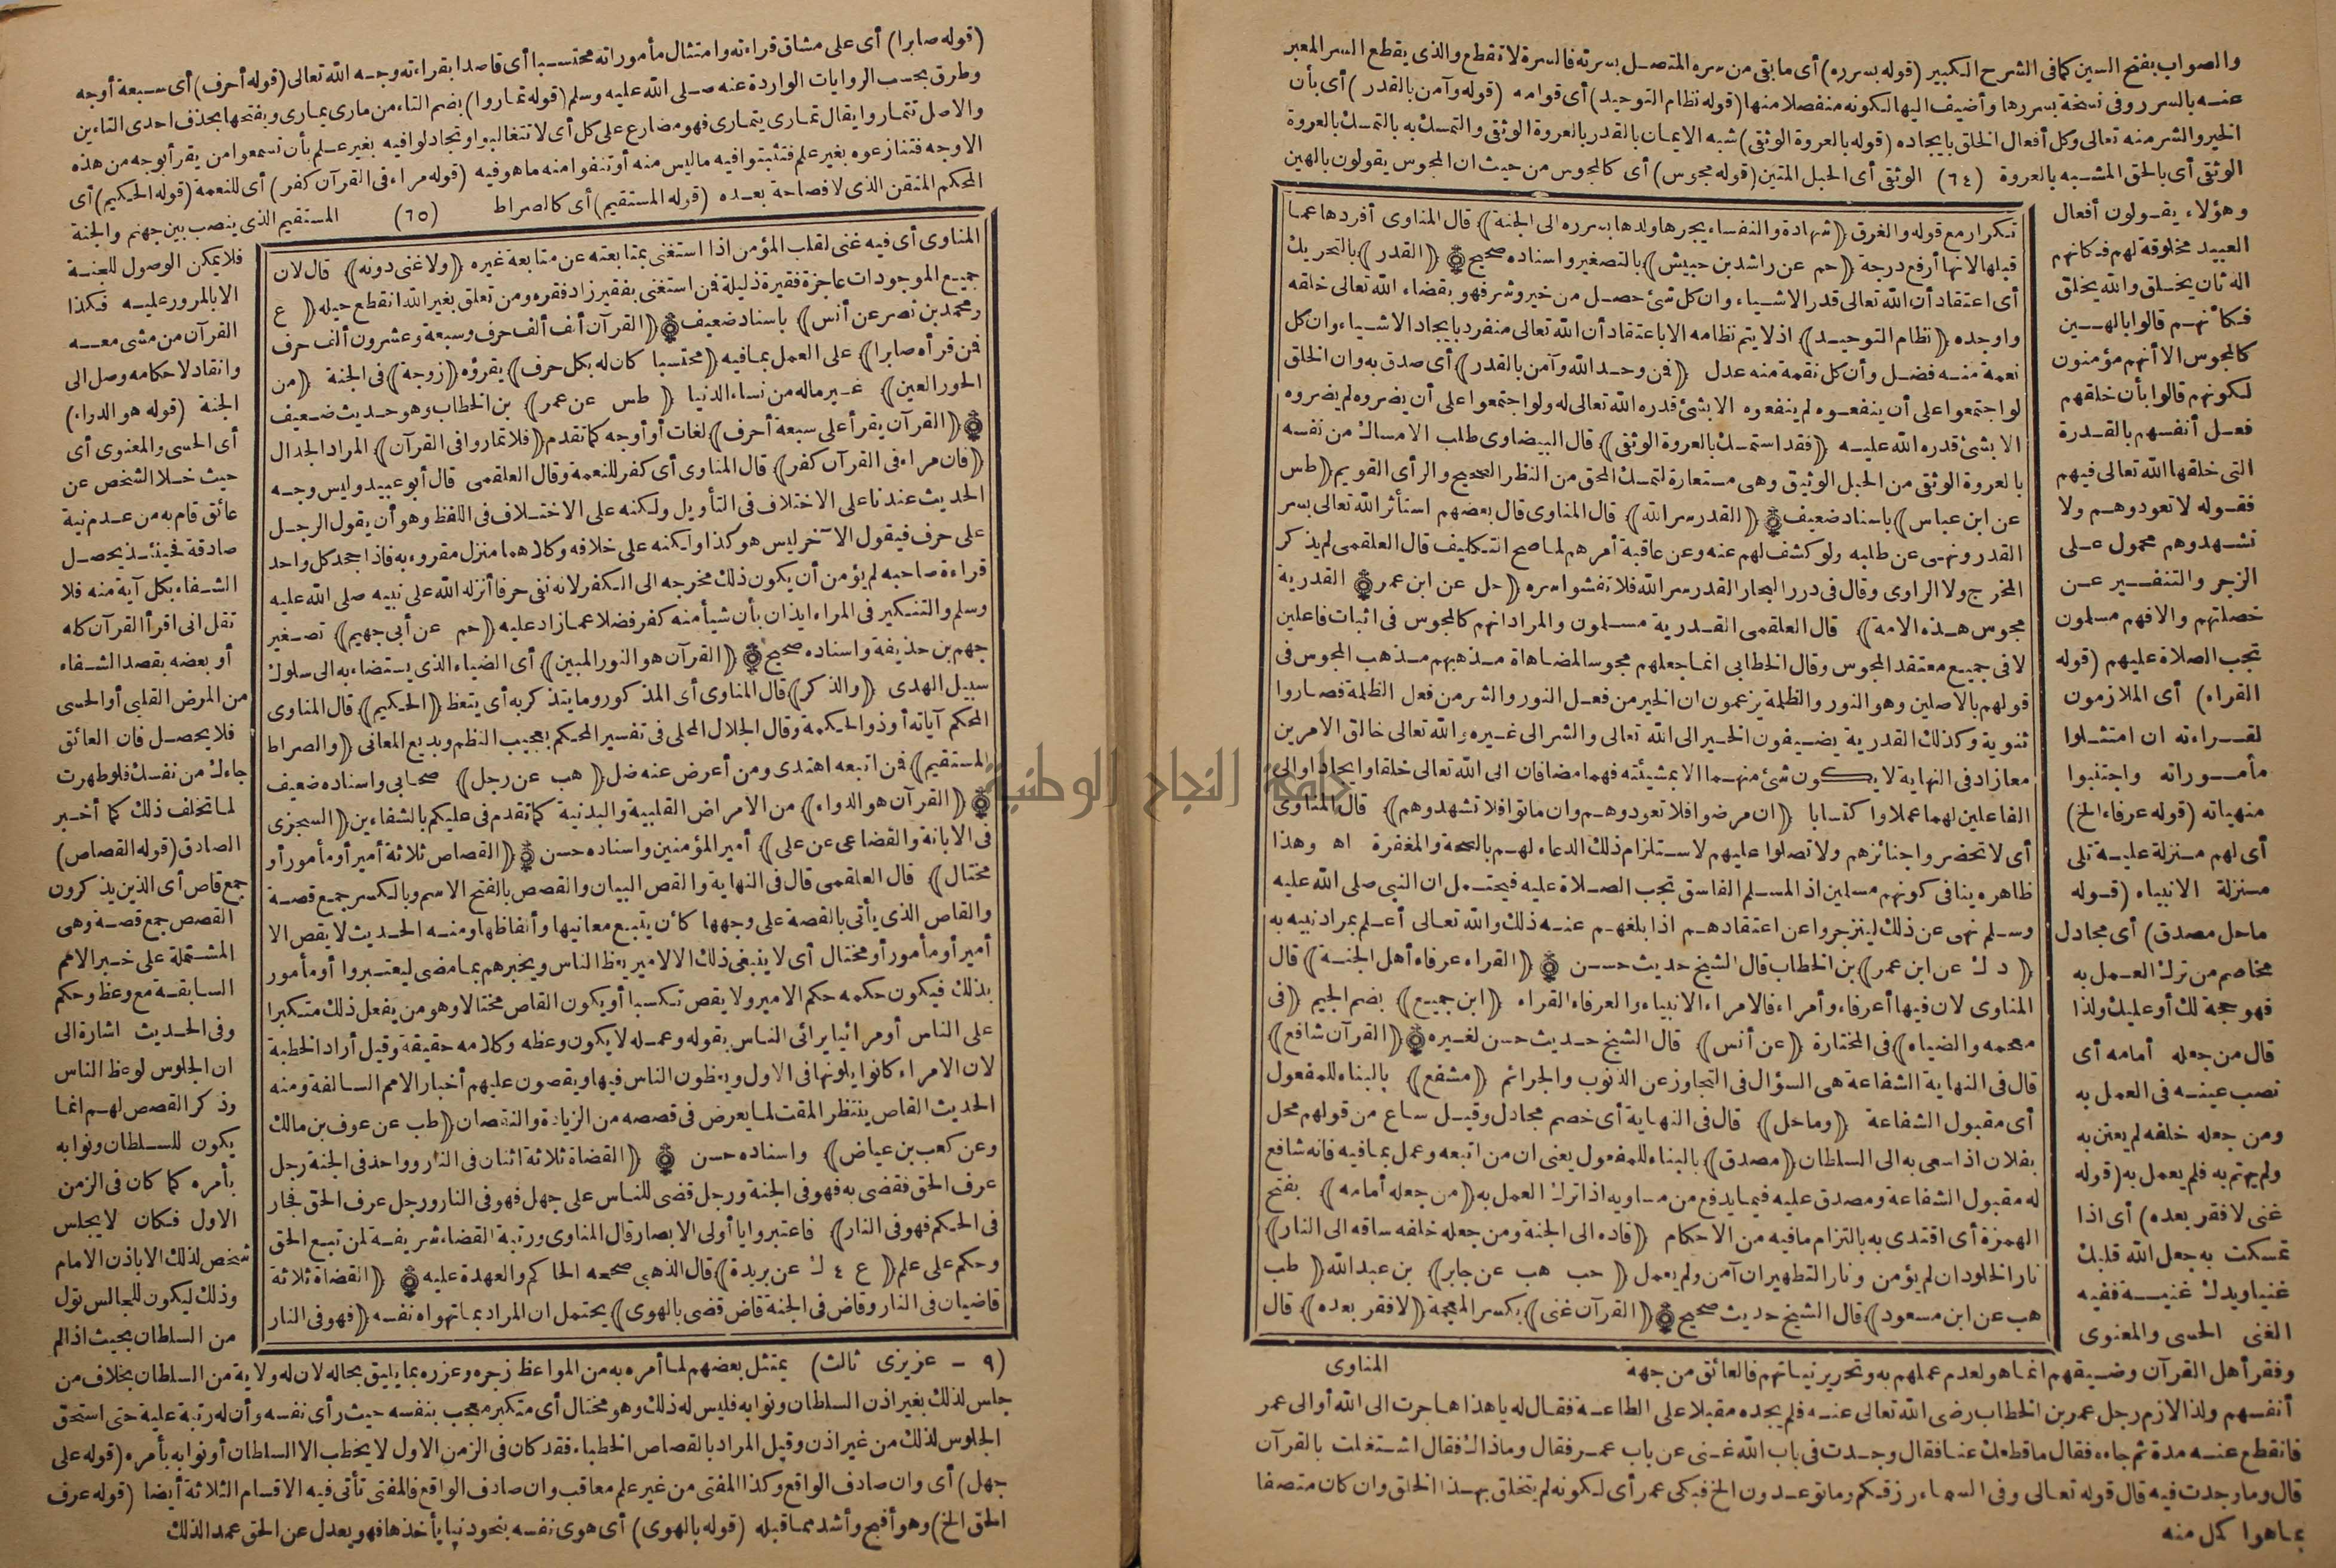 والصواب بفتح السين كما فى الشرح الكبير (قوله بسرره) أى ما بقى من سره المتصل بسرته فالسرة لا تقطع والذى يقطع السر المعبر
عنه بالسرر وفى نسخة بسررها وأضيف اليها لكونه منفصلا منها (قوله نظام التوحيد) أى قوامه (قوله وآمن بالقدر) أى بأن
الخير والشر منه تعالى وكل أفعال الخلق بايجاده (قوله بالعروة الوثقى) شبه الايمان بالقدر بالعروة الوثقى والتمسك به بالتمسك بالعروة
الوثقى أى بالحق المشبه بالعروة (٦٤) الوثقى أى الحبل المتين (قوله مجوس) أى كالمجوس من حيث ان المجوس يقولون بالهين
وهؤلاء يقولون أفعال
العبيد مخلوقة لهم فكانهم
الهثان يخلق والله يخلق
فكأنهم قالوا بالهين
كالمجوس الا أنهم مؤمنون
لكونهم قالوا بأن خلقهم
فعل أنفسهم بالقدرة
التى خلقها الله تعالى فيهم
فقوله لا تعودوهم ولا
تشهدوهم محمول على
الزجر والتنفير عن
خصلتهم والافهم مسلمون
تجب الصلاة عليهم (قوله
القراء) أى الملازمون
لقراءته ان امتثلوا
مأموراته واجتنبوا
منهياته (قوله عرفاء الخ)
أى لهم منزلة علية تلى
منزلة الانبياء (قوله
ماحل مصدق) أى مجادل
مخاصم من ترك العمل به
فهو حجة لك أو عليك ولذا
قال من جعله أمامه أى
نصب عينه فى العمل به
ومن جعله خلفه لم يعتن به
ولم يهتم به فلم يعمل به (قوله
غنى لا فقر بعده) أى اذا
تمسكت به جعل الله قلبك
غنيا ويدك غنية ففيه
الغنى الحسى والمعنوى
تكرار مع قوله والغرق ﴿شهادة والنفساء يجرها ولدها بسرره الى الجنة﴾ قال المناوى أفردها عما
قبلها لانها أرفع درجة ﴿حم عن راشد بن حبيش﴾ بالتصغير واسناده صحيح ﴿القدر﴾ بالتحريك
أى اعتقاد أن الله تعالى قدر الاشياء وان كل شئ حصل من خير وشر فهو بقضاء الله تعالى خلقه
واوجده ﴿نظام التوحيد﴾ اذ لا يتم نظامه الا باعتقاد أن الله تعالى منفرد بايجاد الاشياء وان كل
نعمة منه فضل وأن كل نقمة منه عدل ﴿فمن وحد الله وآمن بالقدر﴾ أى صدق به وان الخلق
لو اجتمعوا على أن ينفعوه لم ينفعوه الا بشئ قدره الله تعالى له ولو اجتمعوا على أن يضروه لم يضروه
الا بشئ قدره الله عليه ﴿فقد استمسك بالعروة الوثقى﴾ قال البيضاوى طلب الامساك من نفسه
بالعروة الوثقى من الحبل الوثيق وهى مستعارة لتمسك المحق من النظر الصحيح والرأى القويم ﴿طس
عن ابن عباس﴾ باسناد ضعيف ﴿القدر سر الله﴾ قال المناوى قال بعضهم استأثر الله تعالى بسر
القدر ونهى عن طلبه ولو كشف لهم عنه وعن عاقبة أمرهم لما صح التكليف قال العلقمى لم يذكر
المخرج ولا الراوى وقال فى درر البحار القدر سر الله فلا تفشوا سره ﴿حل عن ابن عمر﴾ القدرية
مجوس هذه الامة﴾ قال العلقمى القدرية مسلمون والمراد انهم كالمجوس فى اثبات فاعلين
لا فى جميع معتقد المجوس وقال الخطابى انما جعلهم مجوسا لمضاهاة مذهبهم مذهب المجوس فى
قولهم بالاصلين وهو النور والظلمة يزعمون ان الخير من فعل النور والشر من فعل الظلمة فصاروا
ثنوية وكذلك القدرية يضيفون الخير الى الله تعالى والشر الى غيره والله تعالى خالق الامرين
معا زاد فى النهاية لا يكون شئ منهما الا بمشيئته فهما مضافان الى الله تعالى خلقا وايجادا والى
الفاعلين لهما عملا واكتسابا ﴿ان مرضوا فلا تعودوهم وان ماتوا فلا تشهدوهم﴾ قال المناوى
أى لا تحضروا جنائزهم ولا تصلوا عليهم لاستلزام ذلك الدعاء لهم بالصحة والمغفرة اه وهذا
ظاهره ينافى كونهم مسلمين اذ المسلم الفاسق تجب الصلاة عليه فيحتمل ان النبى صلى الله عليه
وسلم نهى عن ذلك لينزجروا عن اعتقادهم اذا بلغهم عنه ذلك والله تعالى أعلم بمراد نبيه به
﴿د ك عن ابن عمر﴾ بن الخطاب قال الشيخ حديث حسن ﴿القراء عرفاء أهل الجنة﴾ قال
المناوى لان فيها أعرفاء وأمراء فالامراء الانبياء والعرفاء القراء ﴿ابن جميع﴾ بضم الجيم ﴿فى
معجمه والضياء﴾ فى المختارة ﴿عن أنس﴾ قال الشيخ حديث حسن لغيره ﴿القرآن شافع﴾
قال فى النهاية الشفاعة هى السؤال فى التجاوز عن الذنوب والجرائم ﴿مشفع﴾ بالبناء للمفعول
أى مقبول الشفاعة ﴿وماحل﴾ قال فى النهاية أى خصم مجادل وقيل ساع من قولهم محل
بفلان اذا سعى به الى السلطان ﴿مصدق﴾ بالبناء للمفعول يعنى ان من اتبعه وعمل بما فيه فانه شافع
له مقبول الشفاعة ومصدق عليه فيما يدفع من مساويه اذا ترك العمل به ﴿من جعله أمامه﴾ بفتح
الهمزة أى اقتدى به بالتزام مافيه من الاحكام ﴿قاده الى الجنة ومن جعله خلفه ساقه الى النار﴾
نار الخلود ان لم يؤمن ونار التطهير ان آمن ولم يعمل ﴿حب هب عن جابر﴾ بن عبد الله ﴿طب
هب عن ابن مسعود﴾ قال الشيخ حديث صحيح ﴿القرآن غنى﴾ بكسر المعجمة ﴿لا فقر بعده﴾ قال
المناوى
وفقر أهل القرآن وضيقهم انما هو لعدم عملهم به وتحرير نياتهم فالعائق من جهة
أنفسهم ولذا لازم رجل عمر بن الخطاب رضى الله تعالى عنه فلم يجده مقبلا على الطاعة فقال له ياهذا هاجرت الى الله أو الى عمر
فانقطع عنه مدة ثم جاءه فقال ما قطعك عنا فقال وجدت فى باب الله غنى عن باب عمر فقال وماذاك فقال اشتغلت بالقرآن
قال وما وجدت فيه قال قوله تعالى وفى السماء رزقكم وما توعدون الخ فبكى عمر أى لكونه لم يتخلق بهذا الخلق وان كان متصفا
بما هو أكمل منه
(قوله صابرا) أى على مشاق قراءته وامتثال مأموراته محتسبا أى قاصدا بقراءته وجه الله تعالى (قوله أحرف) أى سبعة أوجه
وطرق بحسب الروايات الواردة عنه صلى الله عليه وسلم (قوله تماروا) بضم التاء من مارى يمارى وبفتحها بحذف احدى التاءين
والاصل تتماروا يقال تمارى يتمارى فهو مضارع على كل أى لا تتغالبوا وتجادلوا فيه بغير علم بأن تسمعوا من يقرأ بوجه من هذه
الاوجه فتنازعوه بغير علم فتثبتوا فيه ما ليس منه أو تنفوا منه ما هو فيه (قوله مراء فى القرآن كفر) أى للنعمة (قوله الحكيم) أى
المحكم المتقن الذى لا فصاحة بعده (قوله المستقيم) أى كالصراط (٦٥) المستقيم الذى ينصب بين جهنم والجنة
المناوى أى فيه غنى لقلب المؤمن اذا استغنى بمتابعته عن متابعة غيره ﴿ولا غنى دونه﴾ قال لان
جميع الموجودات عاجزة فقيرة ذليلة فمن استغنى بفقير زاد فقره ومن تعلق بغير الله انقطع حبله ﴿ع
ومحمد بن نصر عن أنس﴾ باسناد ضعيف ﴿القرآن ألف ألف حرف وسبعة وعشرون ألف حرف
فمن قرأه صابرا﴾ على العمل بما فيه ﴿محتسبا كان له بكل حرف﴾ يقرؤه ﴿زوجة﴾ فى الجنة ﴿من
الحور العين﴾ غير ماله من نساء الدنيا ﴿طس عن عمر﴾ بن الخطاب وهو حديث ضعيف
﴿القرآن يقرأ على سبعة أحرف﴾ لغات أو أوجه كما تقدم ﴿فلا تماروا فى القرآن﴾ المراد الجدال
﴿فان مراء فى القرآن كفر﴾ قال المناوى أى كفر للنعمة وقال العلقمى قال أبو عبيد وليس وجه
الحديث عندنا على الاختلاف فى التأويل ولكنه على الاختلاف فى اللفظ وهو أن يقول الرجل
على حرف فيقول الآخر ليس هو كذا ولكنه على خلافه وكلاهما منزل مقروء به فاذا جحد كل واحد
قراءة صاحبه لم يؤمن أن يكون ذلك مخرجه الى الكفر لانه نفى حرفا أنزله الله على نبيه صلى الله عليه
وسلم والتنكير فى المراء ايذان بأن شيأ منه كفر فضلا عما زاد عليه ﴿حم عن أبى جهيم﴾ تصغير
جهم بن حذيفة واسناده صحيح ﴿القرآن هو النور المبين﴾ أى الضياء الذى يستضاء به الى سلوك
سبيل الهدى ﴿والذكر﴾ قال المناوى أى المذكور وما يتذكر به أى يتعظ ﴿الحكيم﴾ قال المناوى
المحكم آياته أو ذو الحكمة وقال الجلال المحلى فى تفسير المحكم بعجيب النظم وبديع المعانى ﴿والصراط
المستقيم﴾ فمن اتبعه اهتدى ومن أعرض عنه ضل ﴿هب عن رجل﴾ صحابى واسناده ضعيف
﴿القرآن هو الدواء﴾ من الامراض القلبية والبدنية كما تقدم فى عليكم بالشفاءين ﴿السجزى
فى الابانة والقضاعى عن على﴾ أمير المؤمنين واسناده حسن ﴿القصاص ثلاثة أمير أو مأمور أو
مختال﴾ قال العلقمى قال فى النهاية والقص البيان والقصص بالفتح الاسم وبالكسر جمع قصة
والقاص الذى يأتى بالقصة على وجهها كأن يتتبع معانيها وألفاظها ومنه الحديث لا يقص الا
أمير أو مأمور أو مختال أى لا ينبغى ذلك الا لامير يعظ الناس ويخبرهم بما مضى ليعتبروا أو مأمور
بذلك فيكون حكمه حكم الامير ولا يقص تكسبا أو يكون القاص مختالا وهو من يفعل ذلك متكبرا
على الناس أو مرائيا يرائى الناس بقوله وعمله لا يكون وعظه وكلامه حقيقة وقيل أراد الخطبة
لان الامراء كانوا يلونها فى الاول ويعظون الناس فيها ويقصون عليهم أخبار الامم السالفة ومنه
الحديث القاص ينتظر المقت لما يعرض فى قصصه من الزيادة والنقصان ﴿طب عن عوف بن مالك
وعن كعب بن عياض﴾ واسناده حسن ﴿القضاة ثلاثة اثنان فى النار وواحد فى الجنة رجل
عرف الحق فقضى به فهو فى الجنة ورجل قضى للناس على جهل فهو فى النار ورجل عرف الحق فجار
فى الحكم فهو فى النار﴾ فاعتبروا يا أولى الابصار قال المناوى ورتبة القضاء شريفة لمن تبع الحق
وحكم على علم ﴿ع ٤ ك عن بريدة﴾ قال الذهبى صححه الحاكم والعهدة عليه ﴿القضاة ثلاثة
قاضيان فى النار وقاض فى الجنة قاض قضى بالهوى﴾ يحتمل ان المراد بما تهواه نفسه ﴿فهو فى النار
فلا يمكن الوصول للجنة
الا بالمرور عليه فكذا
القرآن من مشى معه
وانقاد لاحكامه وصل الى
الجنة (قوله هو الدواء)
أى الحسى والمعنوى أى
حيث خلا الشخص عن
عائق قام به من عدم نية
صادقة فحينئذ يحصل
الشفاء بكل آية منه فلا
تقل انى اقرأ القرآن كله
أو بعضه بقصد الشفاء
من المرض القلبى أو الحسى
فلا يحصل فان العائق
جاءك من نفسك فلو طهرت
لما تخلف ذلك كما أخبر
الصادق (قوله القصاص)
جمع قاص أى الذين يذكرون
القصص جمع قصة وهى
المشتملة على خبر الامم
السابقة مع وعظ وحكم
وفى الحديث اشارة الى
ان الجلوس لوعظ الناس
وذكر القصص لهم انما
يكون للسلطان ونوابه
بأمره كما كان فى الزمن
الاول فكان لا يجلس
شخص لذلك الا باذن الامام
وذلك ليكون للمجالس تول
من السلطان بحيث اذا لم
(٩ - عزيزى ثالث) يمتثل بعضهم لما أمره به من المواعظ زجره وعزره بما يليق بحاله لان له ولاية من السلطان بخلاف من
جلس لذلك بغير اذن السلطان ونوابه فليس له ذلك وهو مختال أى متكبر معجب بنفسه حيث رأى نفسه وأن له رتبة علية حتى استحق
الجلوس لذلك من غير اذن وقيل المراد بالقصاص الخطباء فقد كان فى الزمن الاول لا يخطب الا السلطان أو نوابه بأمره (قوله على
جهل) أى وان صادف الواقع وكذا المفتى من غير علم معاقب وان صادف الواقع فالمفتى تأتى فيه الاقسام الثلاثة أيضا (قوله عرف
الحق الخ) وهو أقبح وأشد مما قبله (قوله بالهوى) أى هوى نفسه بنحو دنيا يأخذها فهو يعدل عن الحق عمدا لذلك
جامعة النجاح الوطنية